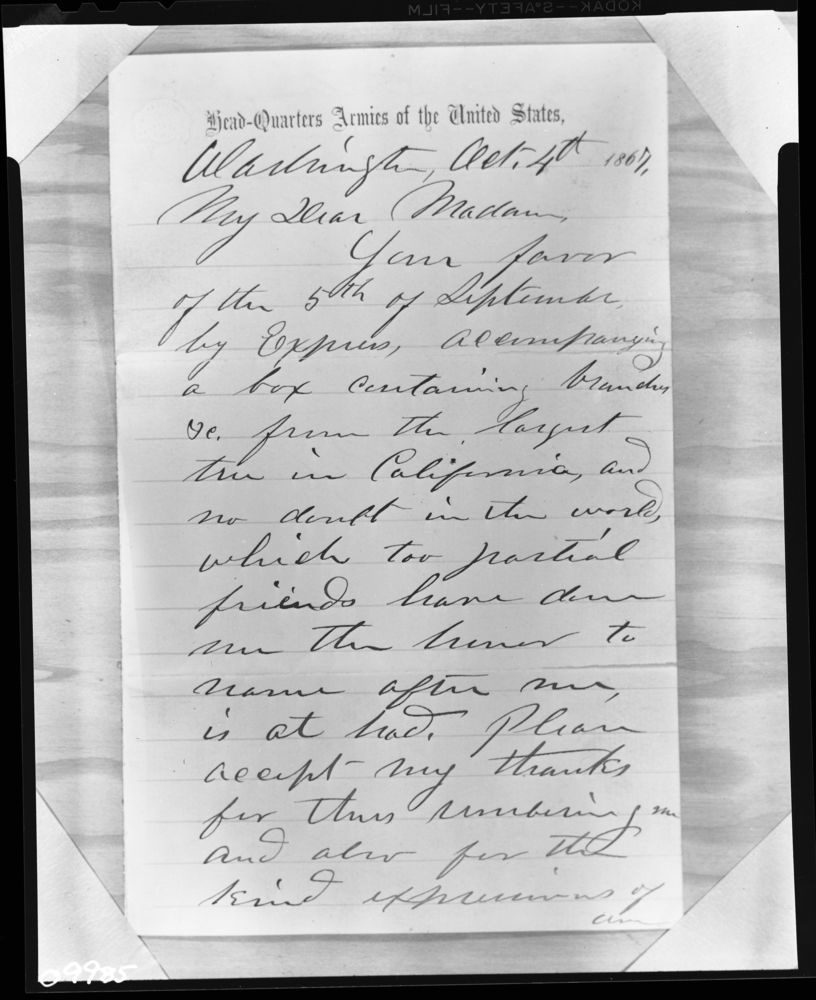 KODAK--SAFETY--FILM
Head-Quarters Armies of the United States,
Washington, Oct. 4th 1867.
My Dear Madam,
Your favor
of the 5th of September,
by Express, accompanying
a box containing branches
&c. from the largest
tree in California, and
no doubt in the world,
which too partial
friends have done
me the honor to
name after me,
is at had. Please
accept my thanks
for thus remembering me
and also for the
kind expressions of
09985